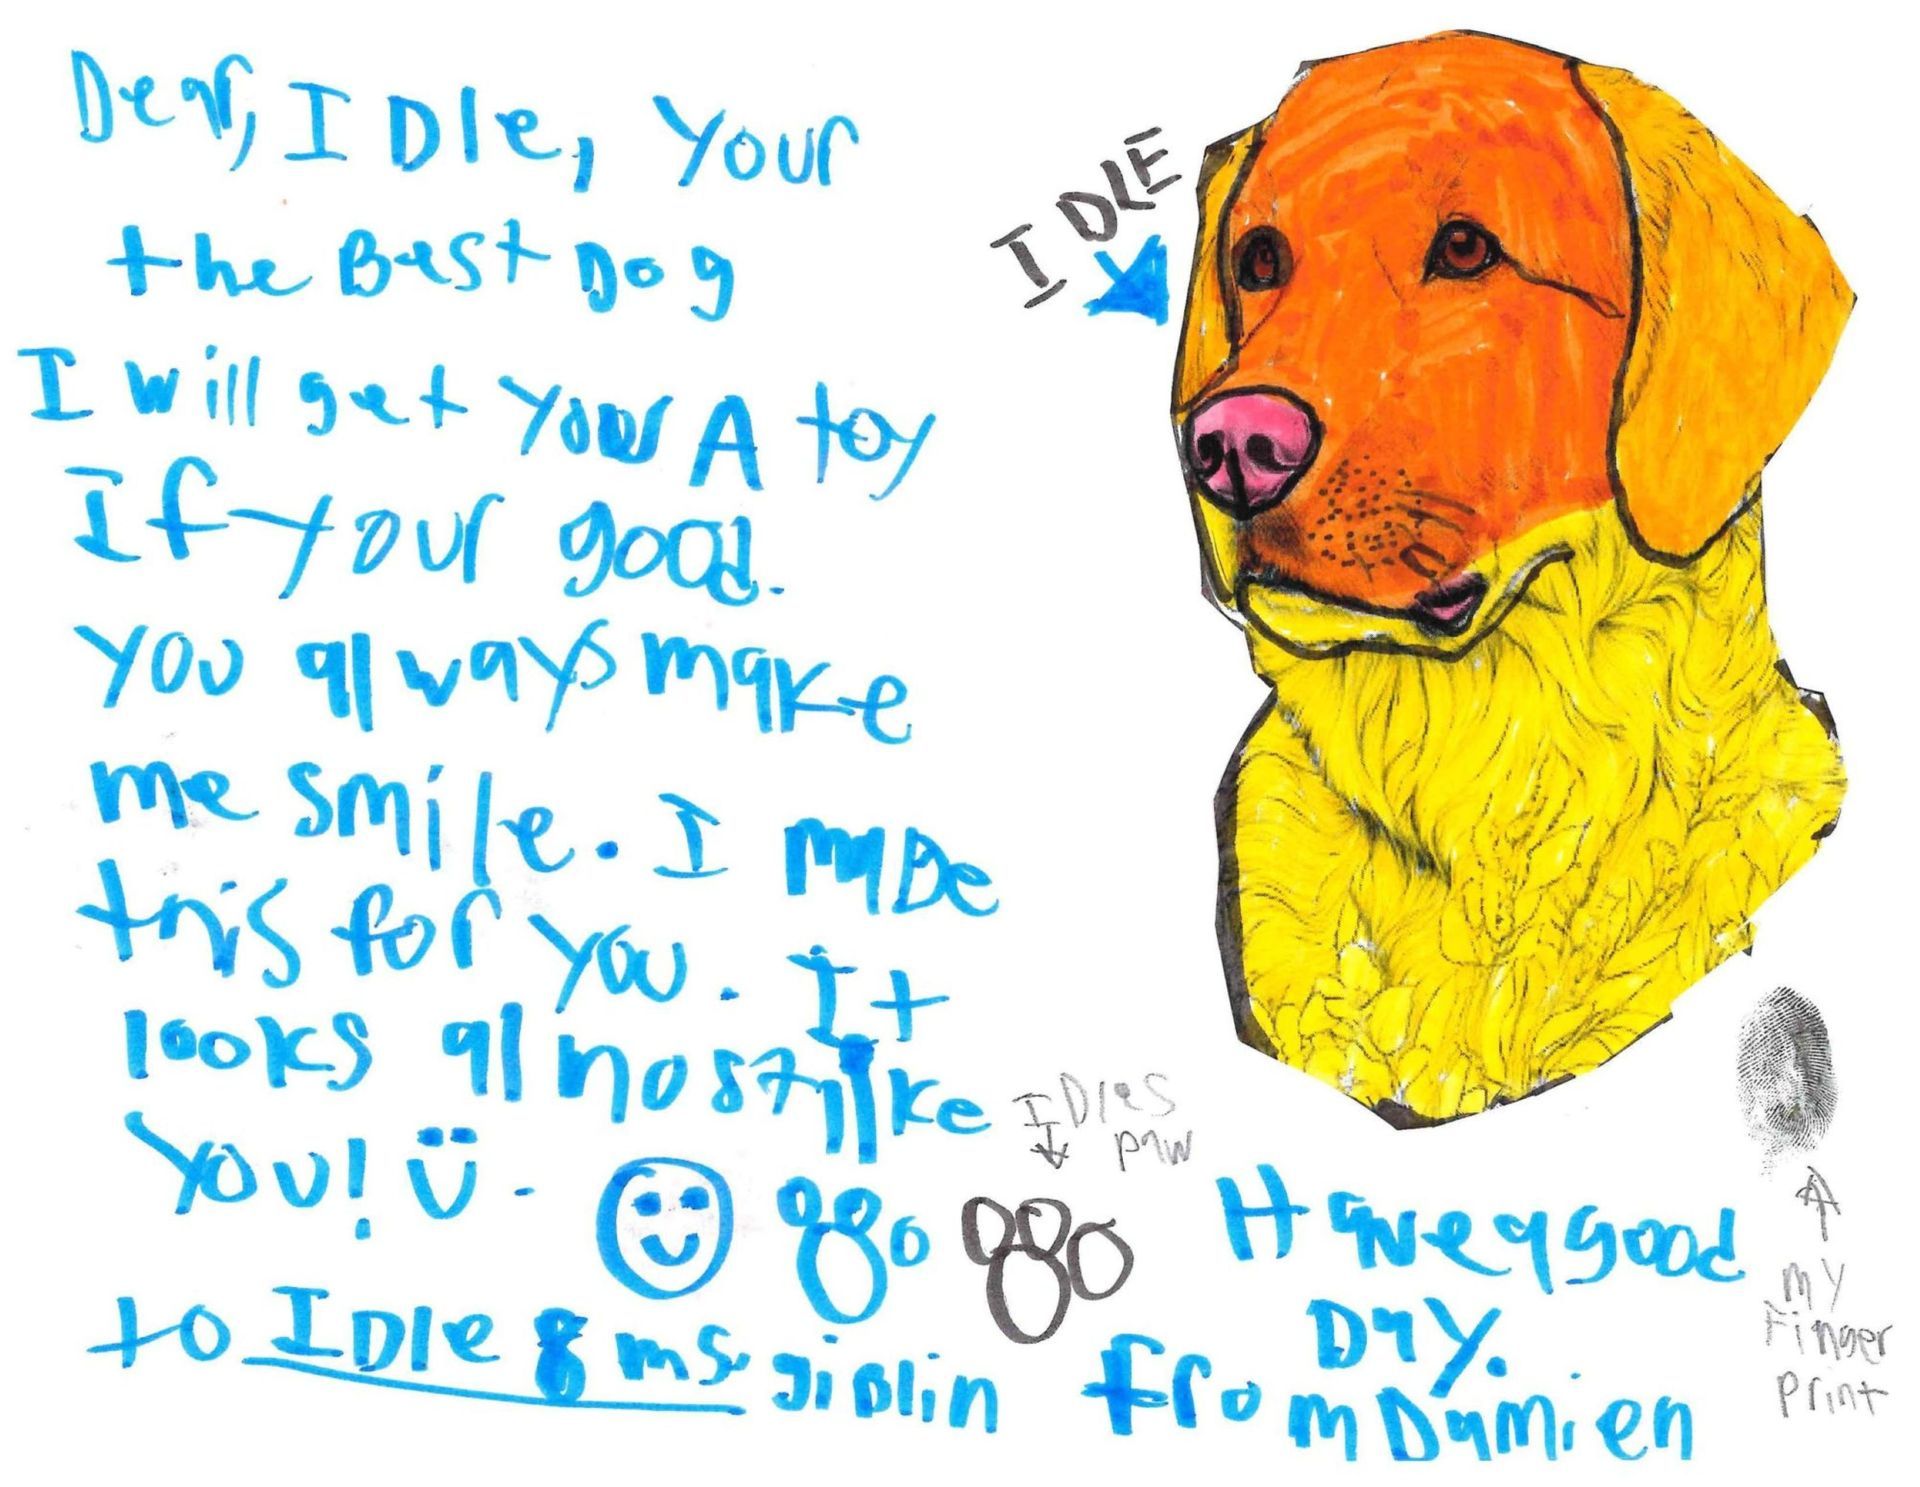 Dear, I Dle, Your
the Best Dog
I will get your A toy
If your good.
you always make
me smile. I maDe
this for you. It
looks almost like
you!
to IDle & ms. giblin
IDLE
IDles
paw
Have a good
DaY.
from Damien
my
Finger
print